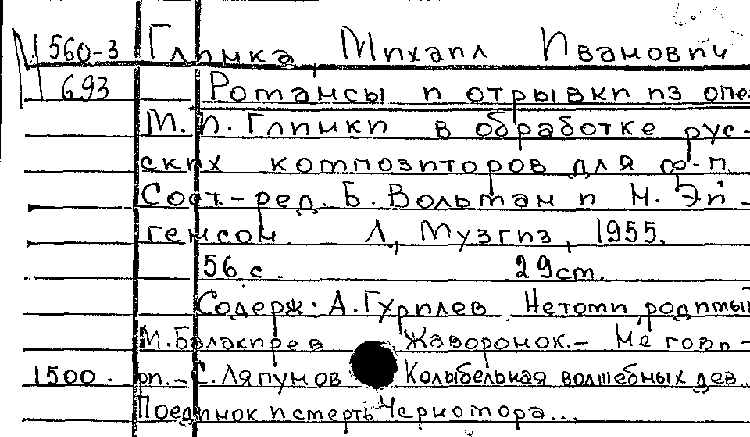 М 560-3 Глинка, Михаил Иванович
693 Романсы и отрывки из опе
М.И. Глинки в обработке рус-
ских композиторов для ф-п.
Сост.-ред. Б. Вольман и М. Эй-
генсон. Л., Музгиз, 1955.
56 с. 29 см.
Содерж: А. Гурилев Не томи родимый
М. Балакирев Жаворонок. - Не гово-
1500. ри. - С. Ляпунов Колыбельная волшебных дев.
Поединок и смерть Черномора...